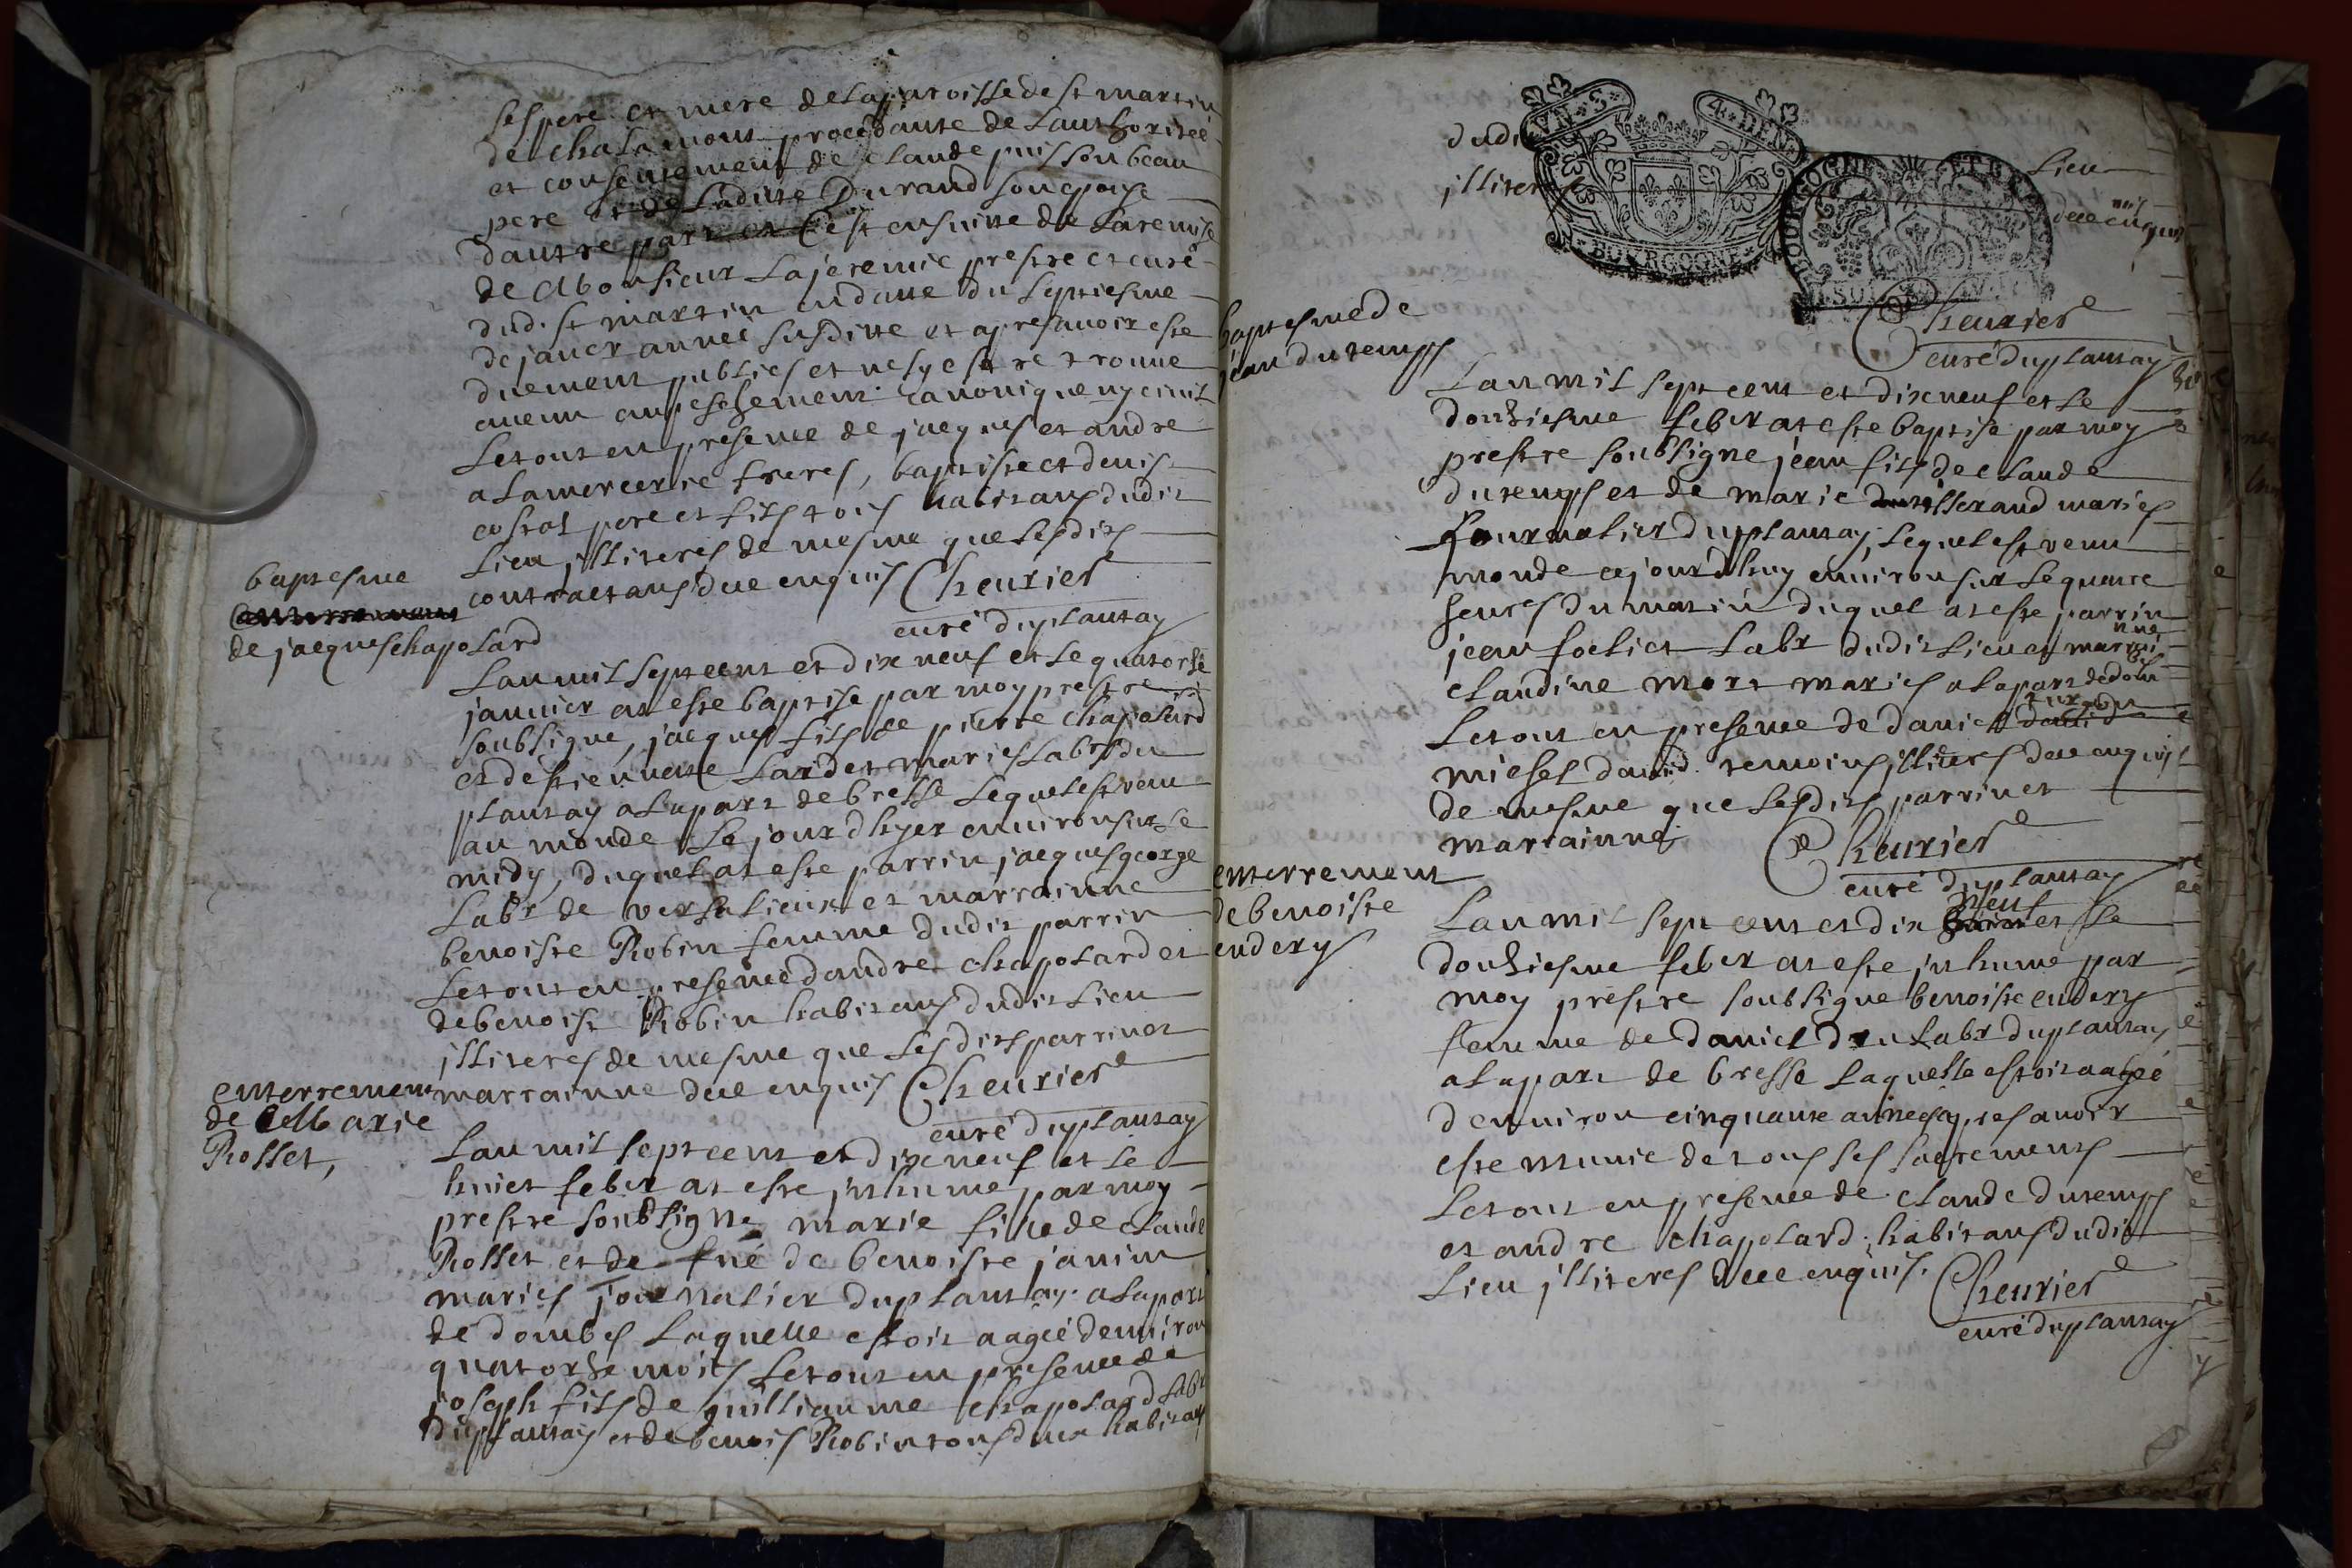 ses pere et mere de la paroisse de st martin
de chalamont procedante de lauthoriteé
et consentement de claude puisson beau
pere et de laditte Durand son epouse
dautre part et C'est ensuitte de la remise
de Monsieur Lajeremie prestre et curé
dud. st martin en datte du septiesme
de janer anneé susditte et apres avoir este
duement publies et ne sy estre trouve
aucun empeschement canonique ny civil
Le tout en presence de jacques et andre
alamercerie freres, baptiste et denis
costal pere et fils tous habitans dudit
Lieu illiteres de mesme que lesdits
contractans due enquis Cheurier
curé du plantay
baptesme
de jacques chapolard
Lan mil sept cent et dix neuf et le quatorse
janvier at este baptise par moy prestre
soubsigné, jacques fils de pierre chapolard
et destiennette Lardet maries Labrs du
plantay a la part de bresse Lequel est venu
au monde Le jour dhyer environ sur le
midy, duquel at este parrin jacques george
Labr de versalieux et marrainne
benoiste Robin femme dudit parrin
Le tout en presence dandre chapolard et
de benoist Robin habitans dudit Lieu
illiteres de mesme que lesdits parrin et
marrainne due enquis Cheurier
curé du plantay
enterrement
de Marie
Rosset,
Lan mil sept cent et dix neuf et le
huict feber at este inhume par moy
prestre soubsigne marie fille de claude
Rosset et de fué de benoiste janin
maries journalier du plantay a la part
de dombes Laquelle estoit aagée denviron
quatorse mois Le tout en presence de
joseph fils de guilliaume chapolard Labr
du plantay et de benois Robin tous deux habitans
dudit Lieu
illiteres due enquis
VN. S. 4. DEN.
BOURGOGNE
Cheurier
curé du plantay
baptesme de
jean dutemps
Lan mil sept cent et dix neuf et le
douziesme feber at este baptise par moy
prestre soubsigne jean fils de claude
dutemps et de marie tisserand maries
journalier du plantay, Lequel est venu
monde ajourdhuy environ sur le quatre
heures du matin duquel at este parrin
jean foeliet Labr dudit Lieu et marrainne
claudine mort maries a la part de dombes
Le tout en presence de daniel
michel david temoins illiteres due enquis
de mesme que lesdits parrin et
marrainne Cheurier
curé du plantay
enterrement
de benoiste
endery
Lan mil sept cent et dix neuf et le
douziesme feber at este inhume par
moy prestre soubsigne benoiste endery
femme de daniel dru Labr du plantay
a la part de bresse Laquelle estoit aagée
denviron cinquante annes apres avoir
este munie de tous les sacrements
Le tout en presence de claude dutemps
et andre chapolard habitans dudit
Lieu illiteres due enquis. Cheurier
curé du plantay